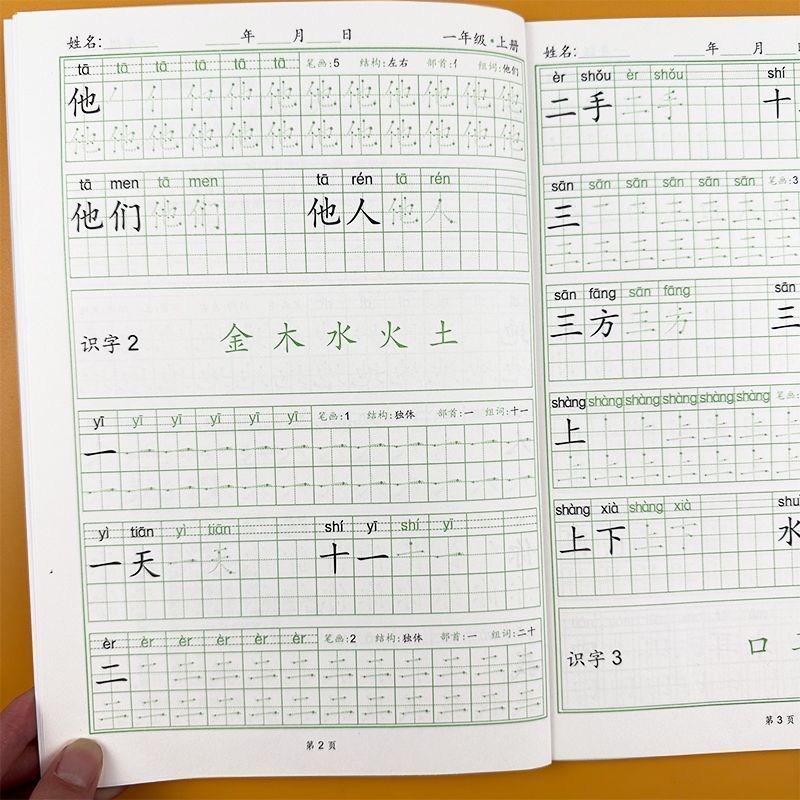 姓名: 年 月 日 一年级·上册
tā tā tā tā tā tā 笔画:5 结构:左右 部首:亻 组词:他们
他 他 他 他 他 他 他 他 他
他 他 他 他 他 他 他 他 他 他 他 他
tā men tā men tā rén tā rén
他们 他们 他人 他人
识字 2 金 木 水 火 土
yī yī yī yī yī yī 笔画:1 结构:独体 部首:一 组词:十一
一 一 一 一 一 一 一 一 一 一 一 一
一 一 一 一 一 一 一 一 一 一 一 一
yì tiān yì tiān shí yī shí yī
一天 一天 十一 十一
èr èr èr èr èr èr 笔画:2 结构:独体 部首:一 组词:二十
二 二 二 二 二 二 二 二 二 二 二 二
二 二 二 二 二 二 二 二 二 二 二 二
第 2 页
姓名: 年 月
èr shǒu èr shǒu shí
二手 二手 十
sān sān sān sān sān sān 笔画:3
三 三 三 三 三 三 三
三 三 三 三 三 三 三
sān fāng sān fāng sān
三方 三方 三
shàng shàng shàng shàng shàng shàng 笔画:
上 上 上 上 上
上 上 上 上 上 上 上
shàng xià shàng xià shuǐ
上下 上下 水
识字 3 口
第 3 页